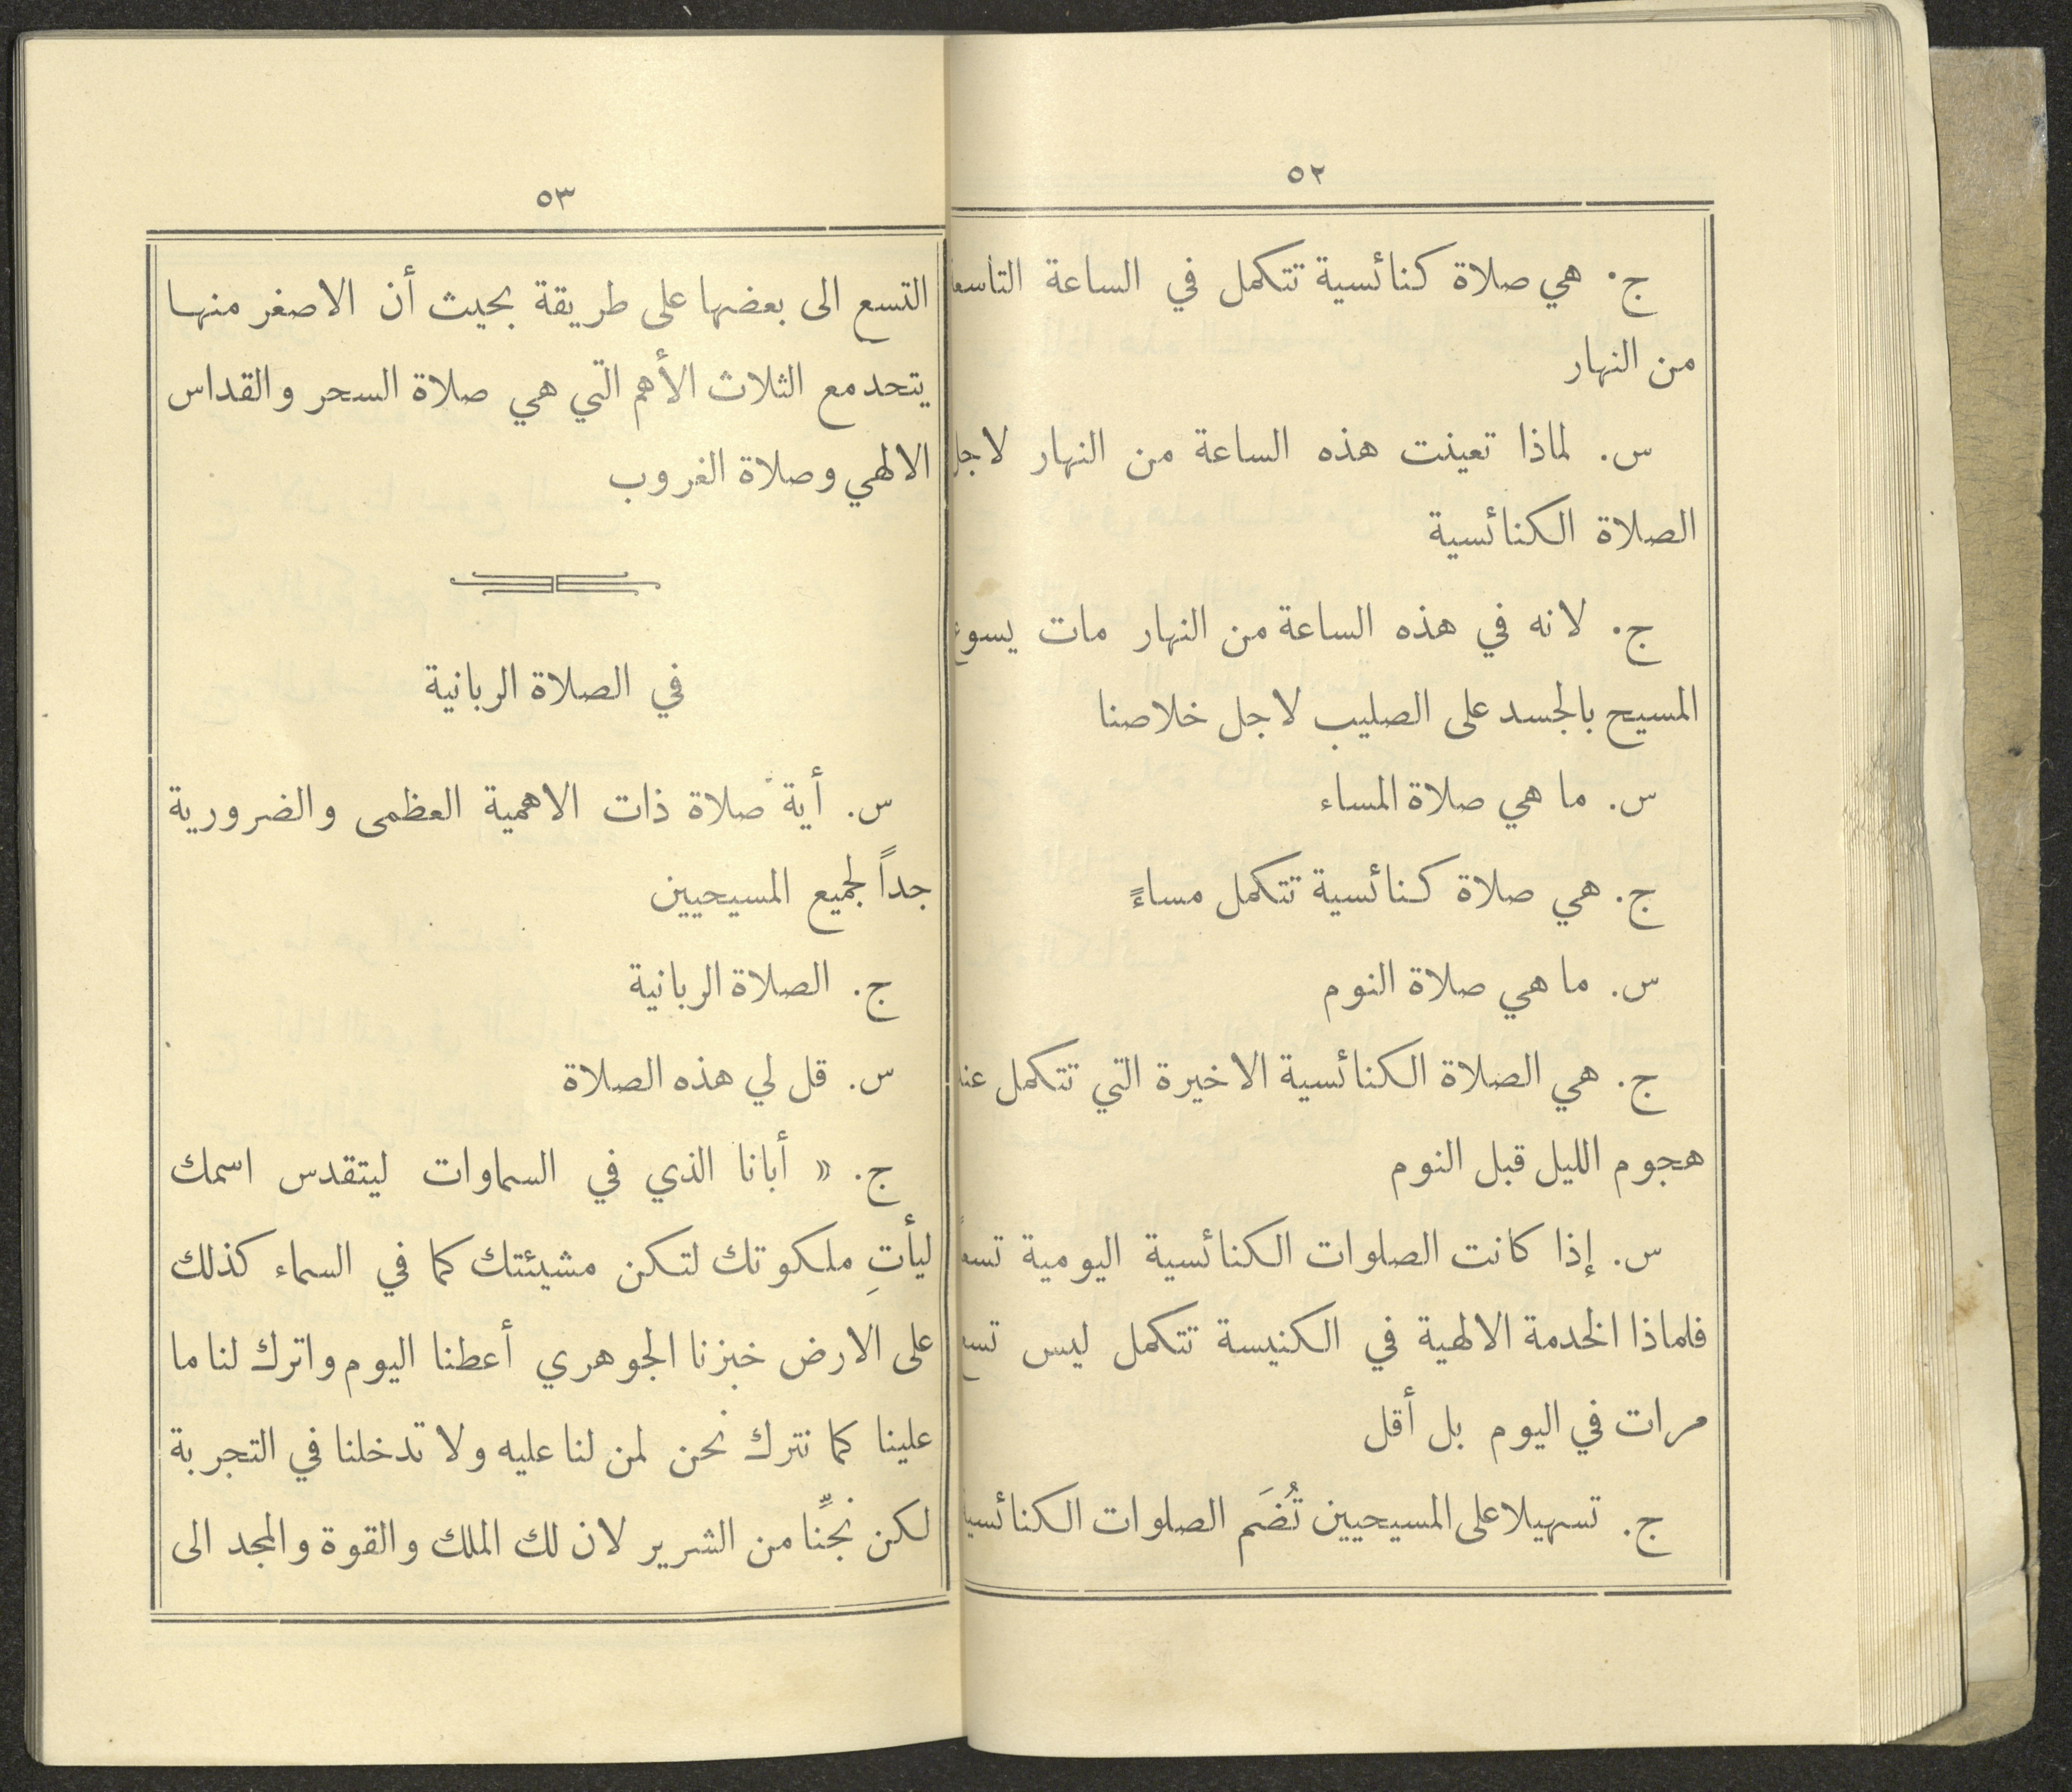 ٥٢
ج. هي صلاة كنائسية تتكمل في الساعة التاسعة
من النهار
س. لماذا تعينت هذه الساعة من النهار لاجل
الصلاة الكنائسية
ج. لانه في هذه الساعة من النهار مات يسوع
المسيح بالجسد على الصليب لاجل خلاصنا
س. ما هي صلاة المساء
ج. هي صلاة كنائسية تتكمل مساءً
س. ما هي صلاة النوم
ج. هي الصلاة الكنائسية الاخيرة التي تتكمل عند
هجوم الليل قبل النوم
س. إذا كانت الصلوات الكنائسية اليومية تسعاً
فلماذا الخدمة الالهية في الكنيسة تتكمل ليس تسع
مرات في اليوم بل أقل
ج. تسهيلا على المسيحيين تُضَم الصلوات الكنائسية
٥٣
التسع الى بعضها على طريقة بحيث أن الاصغر منها
يتحد مع الثلاث الأهم التي هي صلاة السحر والقداس
الالهي وصلاة الغروب
في الصلاة الربانية
س. أية صلاة ذات الاهمية العظمى والضرورية
جداً لجميع المسيحيين
ج. الصلاة الربانية
س. قل لي هذه الصلاة
ج. « أبانا الذي في السماوات ليتقدس اسمك
ليأتِ ملكوتك لتكن مشيئتك كما في السماء كذلك
على الارض خبزنا الجوهري أعطنا اليوم واترك لنا ما
علينا كما نترك نحن لمن لنا عليه ولا تدخلنا في التجربة
لكن نجِّنا من الشرير لان لك الملك والقوة والمجد الى